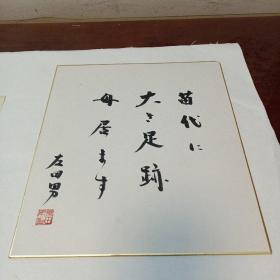 苗代に
大き足跡
母居ます
左田男